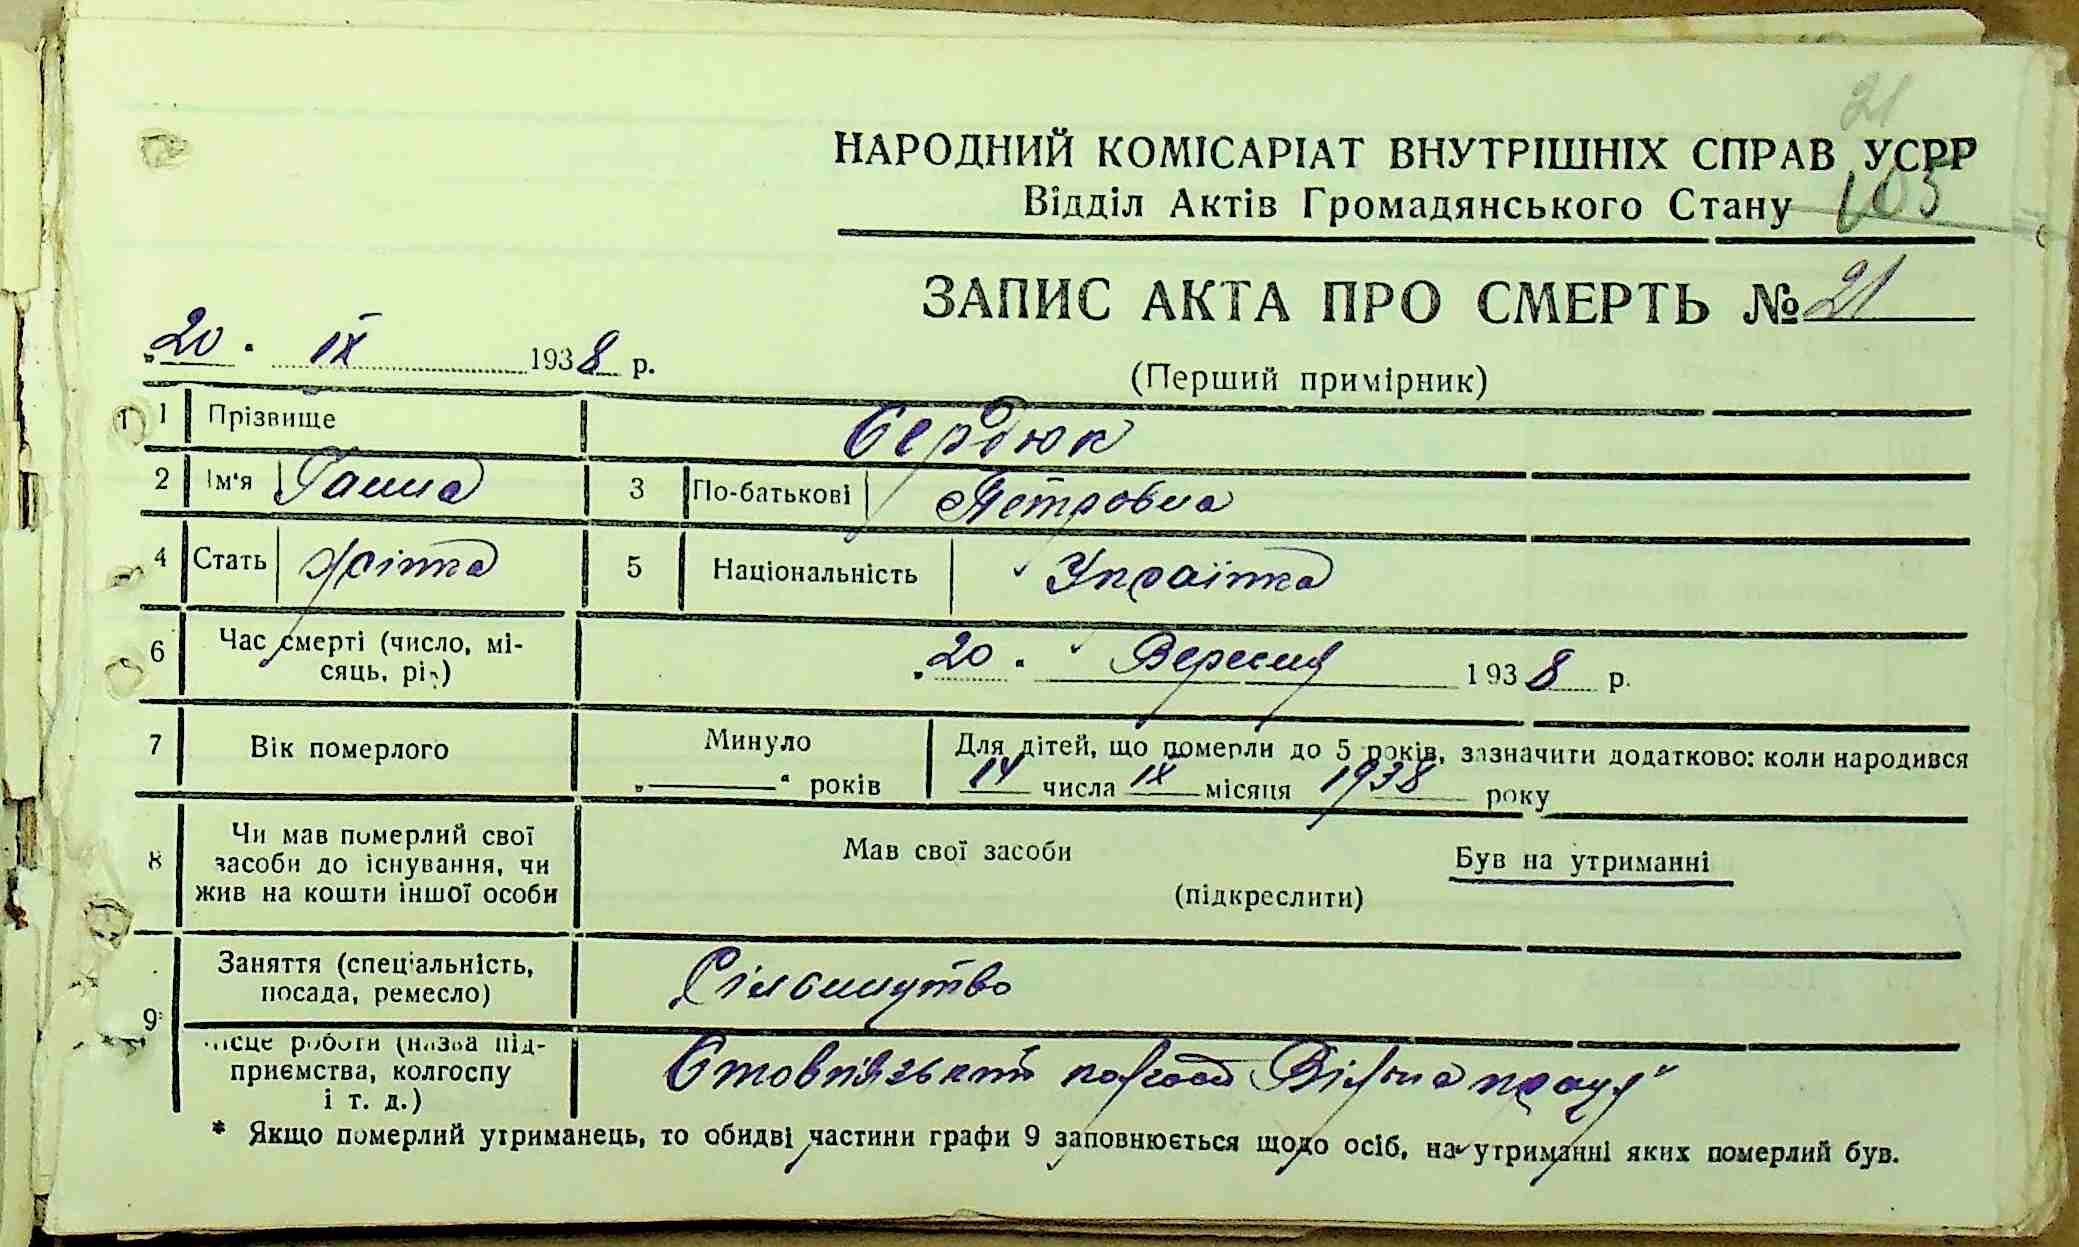 21
НАРОДНИЙ КОМІСАРІАТ ВНУТРІШНІХ СПРАВ УСРР
Відділ Актів Громадянського Стану 105
ЗАПИС АКТА ПРО СМЕРТЬ № 21
„20" IX 1938 р.
(Перший примірник)
1 Прізвище Сердюк
2 Ім'я Ганна 3 По-батькові Петровна
4 Стать жінка 5 Національність Українка
6 Час смерті (число, мі-
сяць, рік) „20" Вересня 1938 р.
7 Вік померлого Минуло „—" років Для дітей, що померли до 5 років, зазначити додатково: коли народився
14 числа IX місяця 1938 року
8 Чи мав померлий свої
засоби до існування, чи
жив на кошти іншої особи
Мав свої засоби Був на утриманні
(підкреслити)
9 Заняття (спеціальність,
посада, ремесло) Сільництво
Місце роботи (назва під-
приємства, колгоспу
і т. д.) Стовп'язький колгосп Вільна праця"
* Якщо померлий утриманець, то обидві частини графи 9 заповнюється щодо осіб, на утриманні яких померлий був.